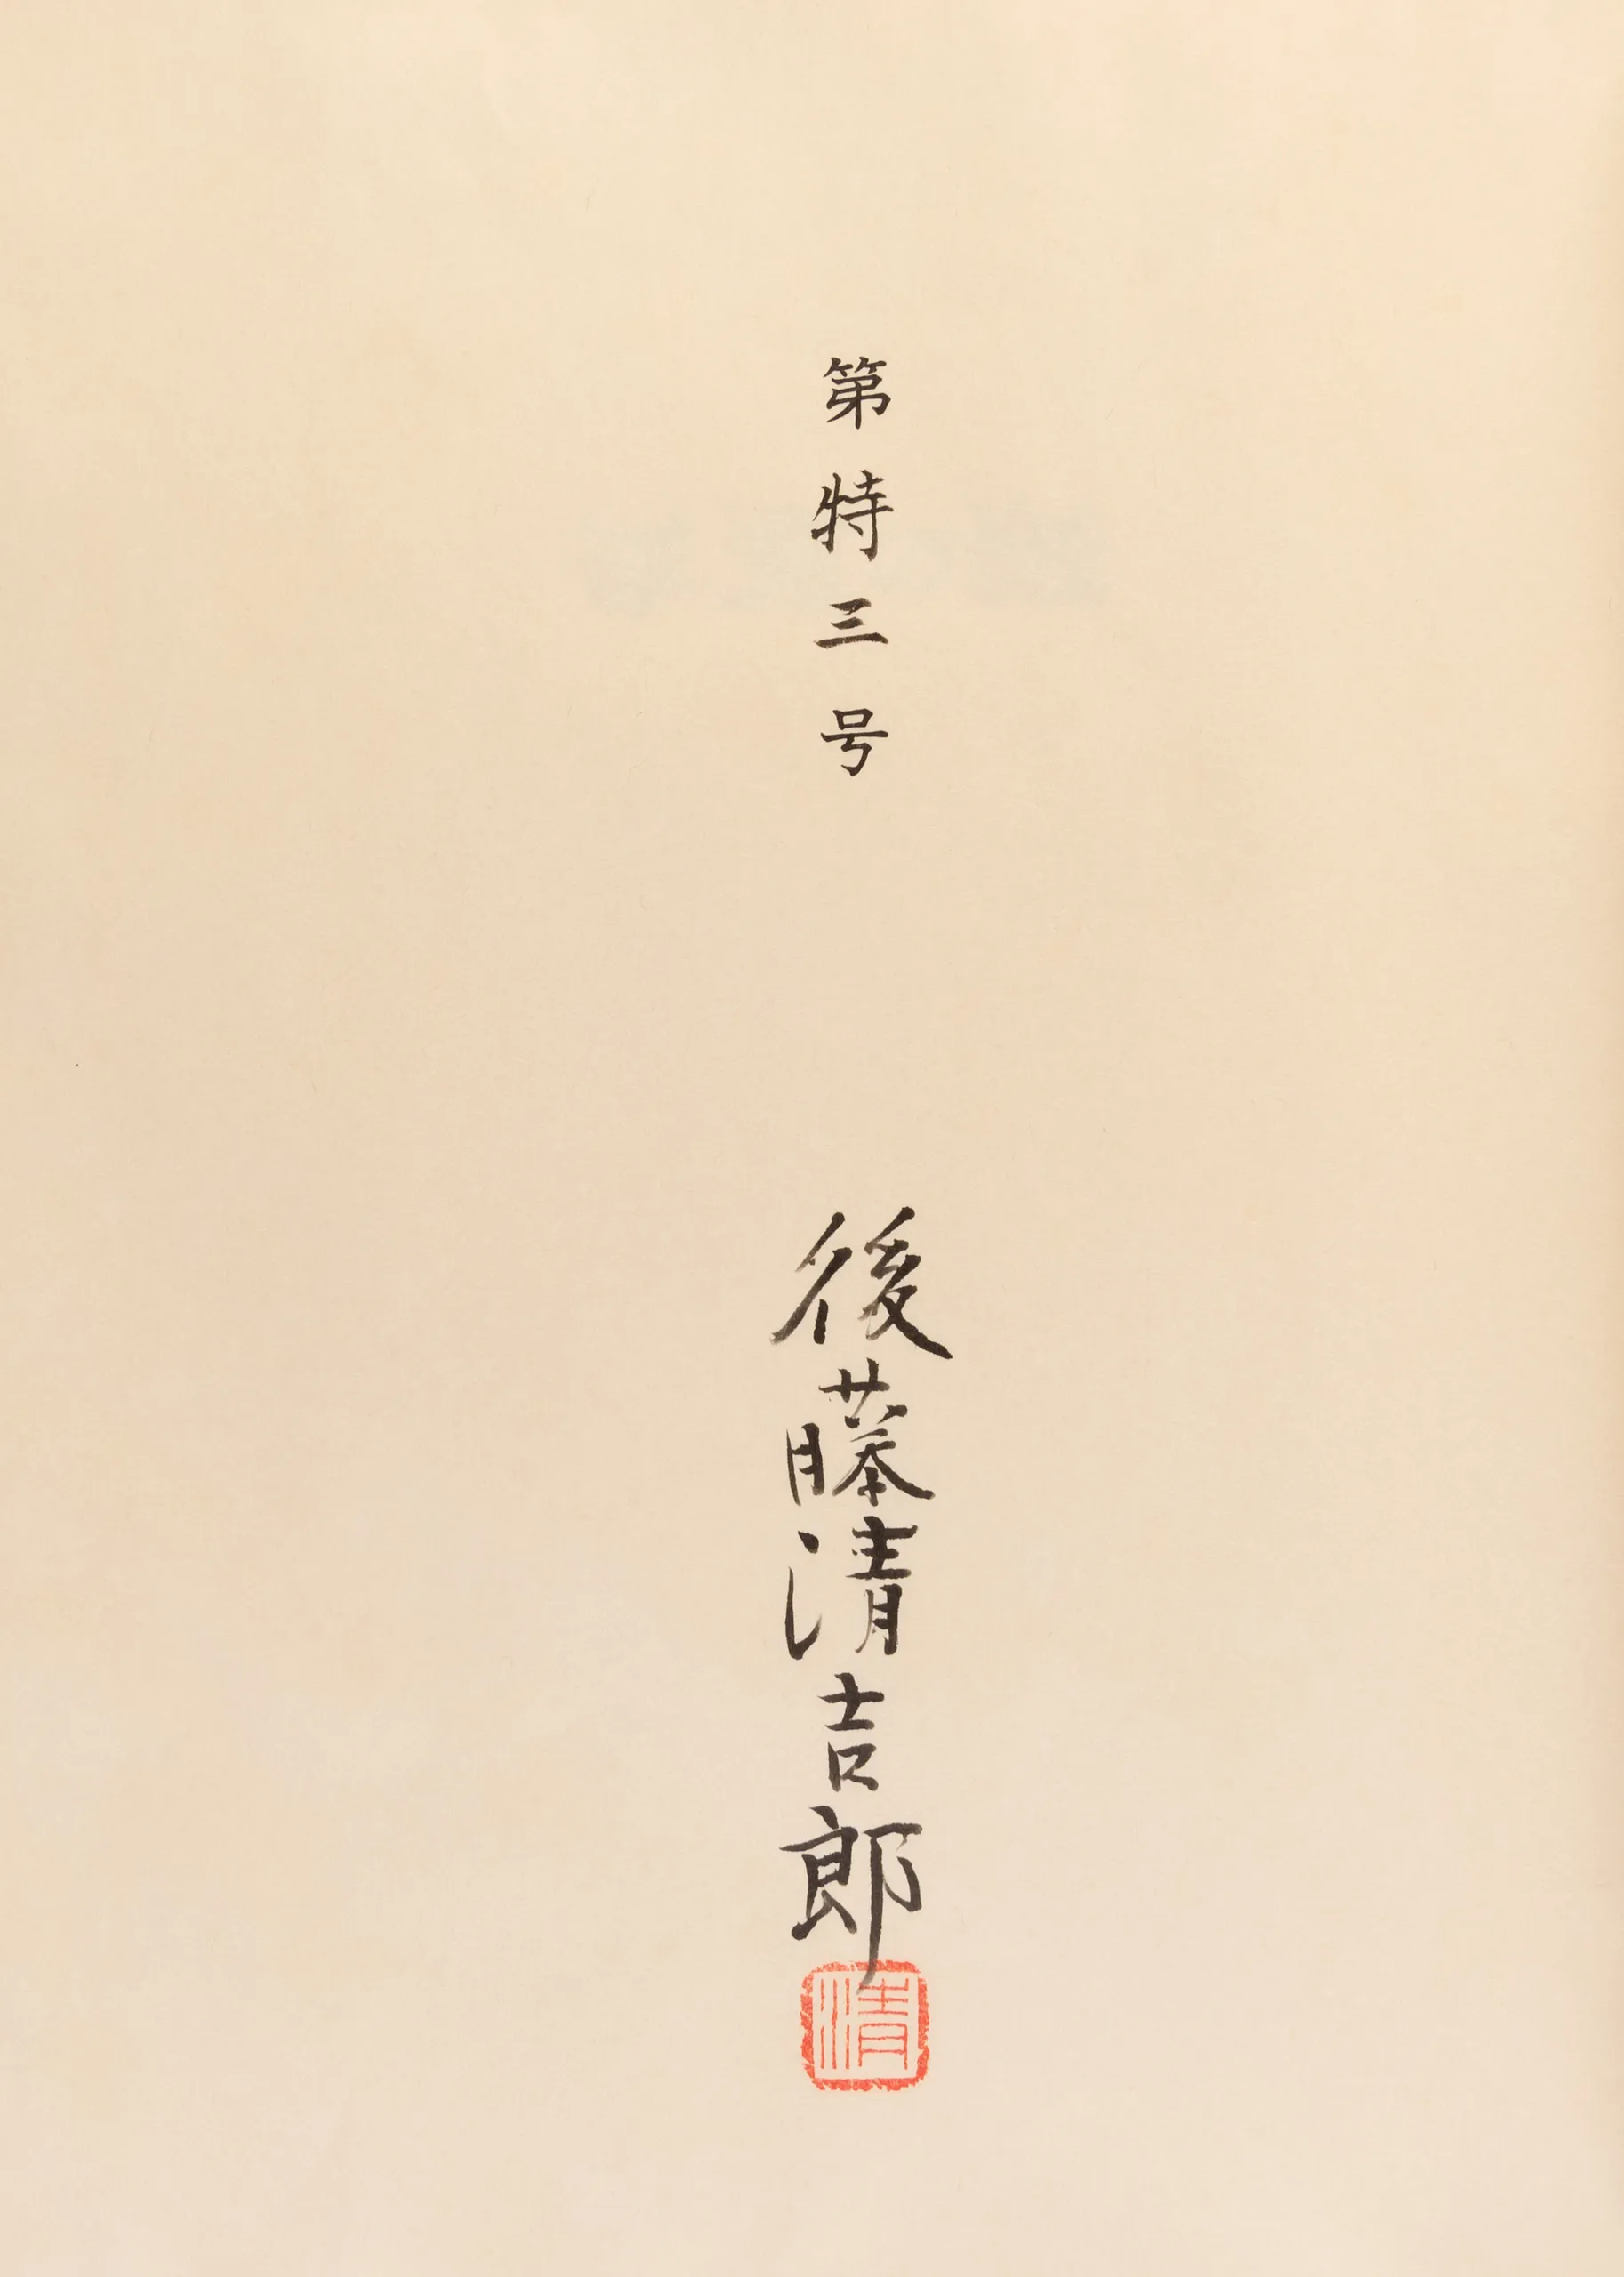 第特三号
後藤清吉郎
清